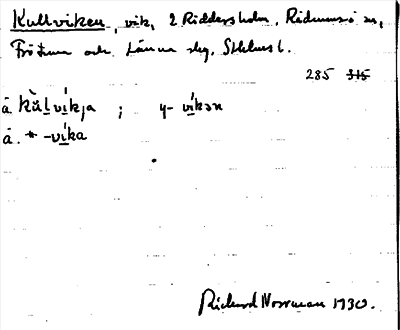 Kullviken, vik, 2 Riddersholm, Rådmansö sn,
Frötuna och Länna skg, Sthlms l.
285 315
å. kùlvíkja ; y- víkən
å. * -víka
Richard Norrman 1930.